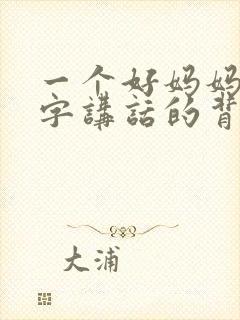 一个好妈妈
字講話的背
大浦